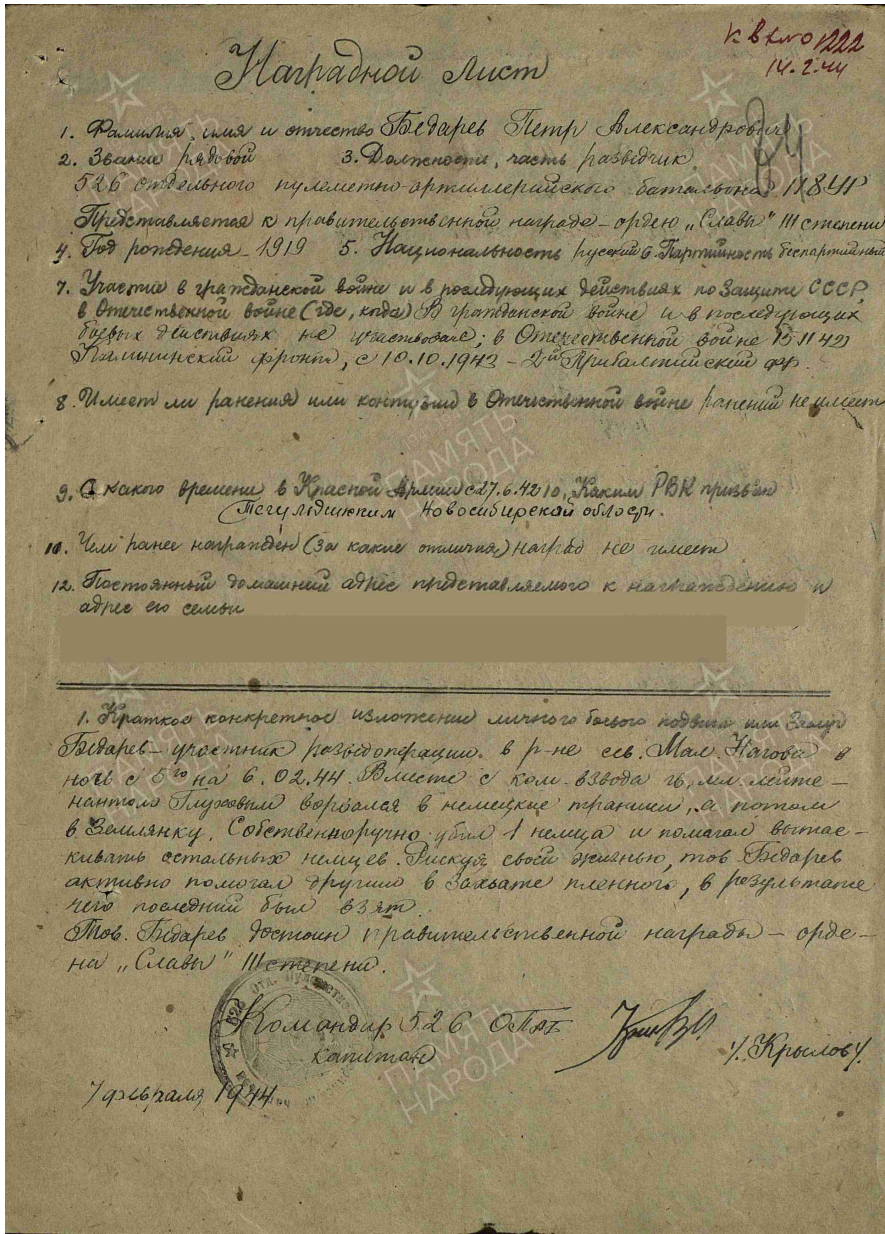 к вх №0 1222
14.2.44
Наградной лист
1. Фамилия, имя и отчество Бедарев Петр Александрович
2. Звание рядовой 3. Должность, часть разведчик
526 отдельного пулеметно-артиллерийского баталиона 118 УР
Представляется к правительственной награде – ордену „Славы" III степени
4. Год рождения – 1919 5. Национальность русский 6. Партийность беспартийный
7. Участие в гражданской войне и в последующих действиях по защите СССР,
в Отечественной войне (где, когда) В гражданской войне и в последующих
боевых действиях не участвовал; в Отечественной войне 15.11.42
Калининский фронт, с 10.10.1943 – 2й Прибалтийский фр.
8. Имеет ли ранения или контузии в Отечественной войне ранений не имеет
9. С какого времени в Красной Армии с 27.6.42 10. Каким РВК призван
Тегульдетским Новосибирской области.
10. Чем ранее награжден (за какие отличия) наград не имеет
12. Постоянный домашний адрес представляемого к награждению и
адрес его семьи
1. Краткое конкретное изложение личного боевого подвига или заслуг
Бедарев – участник разведоперации в р-не сев. Мал. Нагова в
ночь с 5го на 6.02.44. Вместе с ком. взвода мл. лейте-
нантом Глуховым ворвался в немецкие траншеи, а потом
в землянку. Собственноручно убил 1 немца и помагал вытас-
кивать остальных немцев. Рискуя своей жизнью, тов. Бедарев
активно помогал другим в захвате пленного, в результате
чего последний был взят.
Тов. Бедарев достоин правительственной награды – орде-
на „Славы" III степени.
Командир 526 ОПАБ
капитан
/. Крылов /.
7 февраля 1944
ПАМЯТЬ
НАРОДА